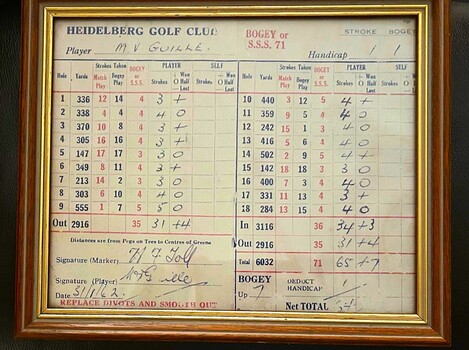 HEIDELBERG GOLF CLUB BOGEY or S.S.S. 71 STROKE BOGEY
Player M V GUILLE. Handicap 1 1
Hole Yards Strokes Taken Match Play Bogey Play BOGEY or S.S.S. PLAYER Strokes + Won O Half - Lost SELF Strokes + Won O Half - Lost
1 336 12 14 4 3 +
2 338 4 4 4 4 0
3 370 10 8 4 3 +
4 305 16 16 4 3 +
5 147 17 17 3 3 0
6 349 8 11 4 3 +
7 213 14 2 3 3 0
8 303 6 10 4 4 0
9 555 1 7 5 5 0
Out 2916 35 31 +4
Distances are from Pegs on Tees to Centres of Greens
Signature (Marker)
Signature (Player)
Date 3/1/62
REPLACE DIVOTS AND SMOOTH OUT
10 440 3 12 5 4 +
11 359 9 5 4 4 0
12 242 15 1 3 4 -
13 416 5 6 4 4 0
14 502 2 9 5 4 +
15 142 18 18 3 3 0
16 400 7 3 4 4 0
17 331 11 13 4 3 +
18 284 13 15 4 4 0
In 3116 36 34 +3
Out 2916 35 31 +4
Total 6032 71 65 +7
BOGEY DEDUCT HANDICAP 1
Up 7 Net TOTAL 64